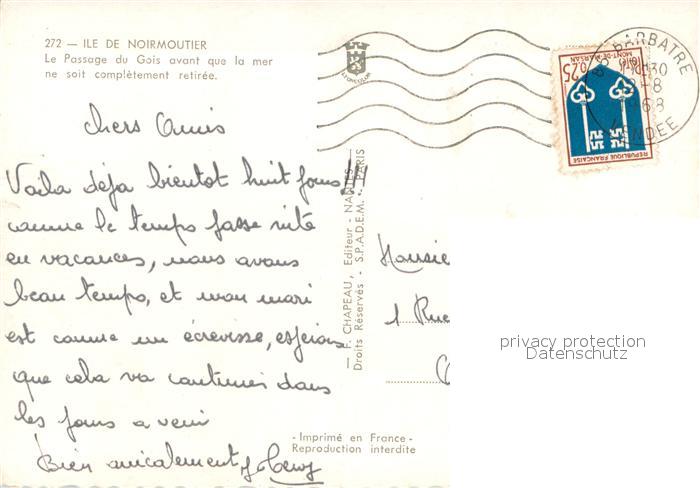 272 — ILE DE NOIRMOUTIER
Le Passage du Gois avant que la mer
ne soit complètement retirée.
LYONCOLOR
85 BARBATRE
VENDÉE
8-8
1968
0,25
MONT-DE-MARSAN
REPUBLIQUE FRANÇAISE
chers Amis
Voila déja bientot huit jours!!
comme le temps passe vite
en vacances, nous avons
beau temps, et mon mari
est comme un écrevisse, espérons
que cela va continuer dans
les jours a venir
Bien amicalement
— F. CHAPEAU, Editeur - NANTES —
Droits Réservés - S.P.A.D.E.M. - PARIS
Monsie
1 Rue
privacy protection
Datenschutz
- Imprimé en France -
Reproduction interdite